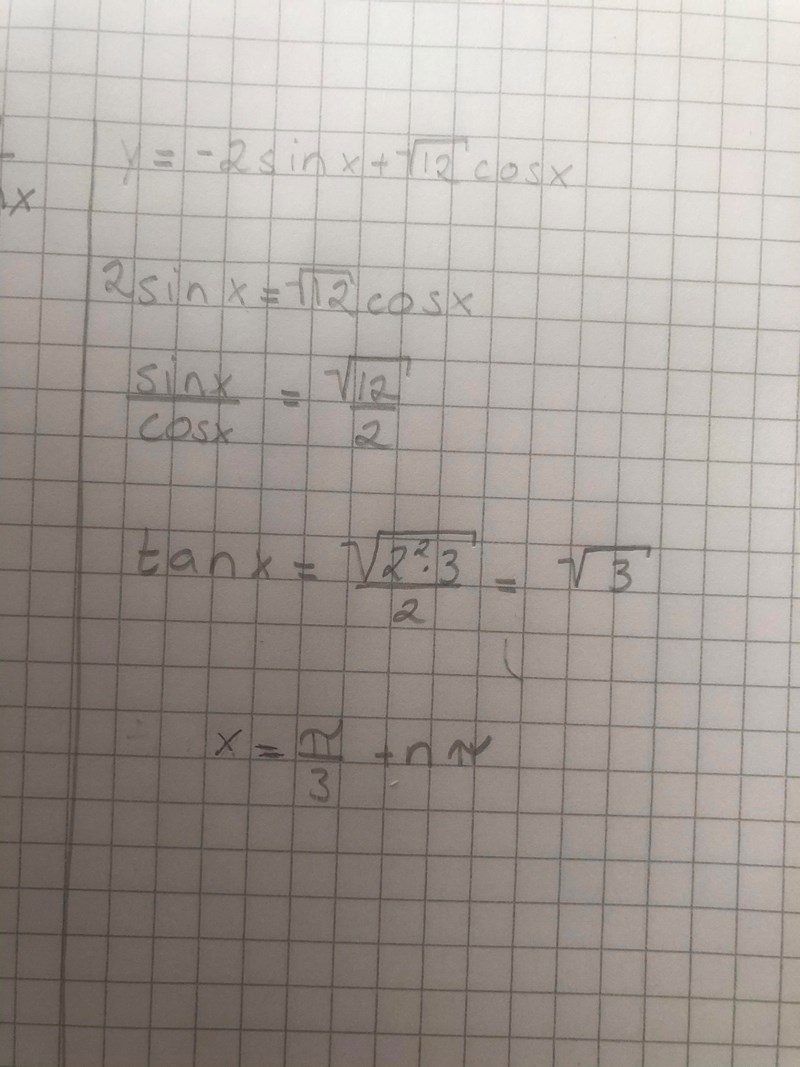 y = -2 sin x + √12 cos x
x
2 sin x = √12 cos x
sin x / cos x = √12 / 2
tan x = √(2²·3) / 2 = √3
x = π/3 + nπ